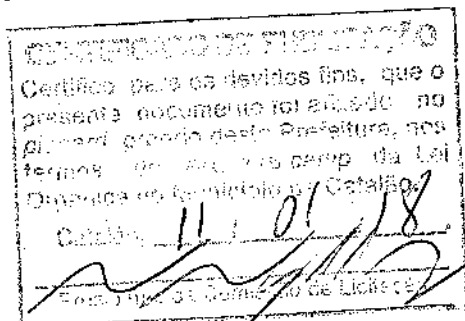 Certifico para os devidos fins, que o
presente documento foi afixado no
placard próprio desta Prefeitura, nos
termos da Lei
Orgânica do Município de Catalão.
Catalão, 11 / 01 / 18
Comissão de Licitação